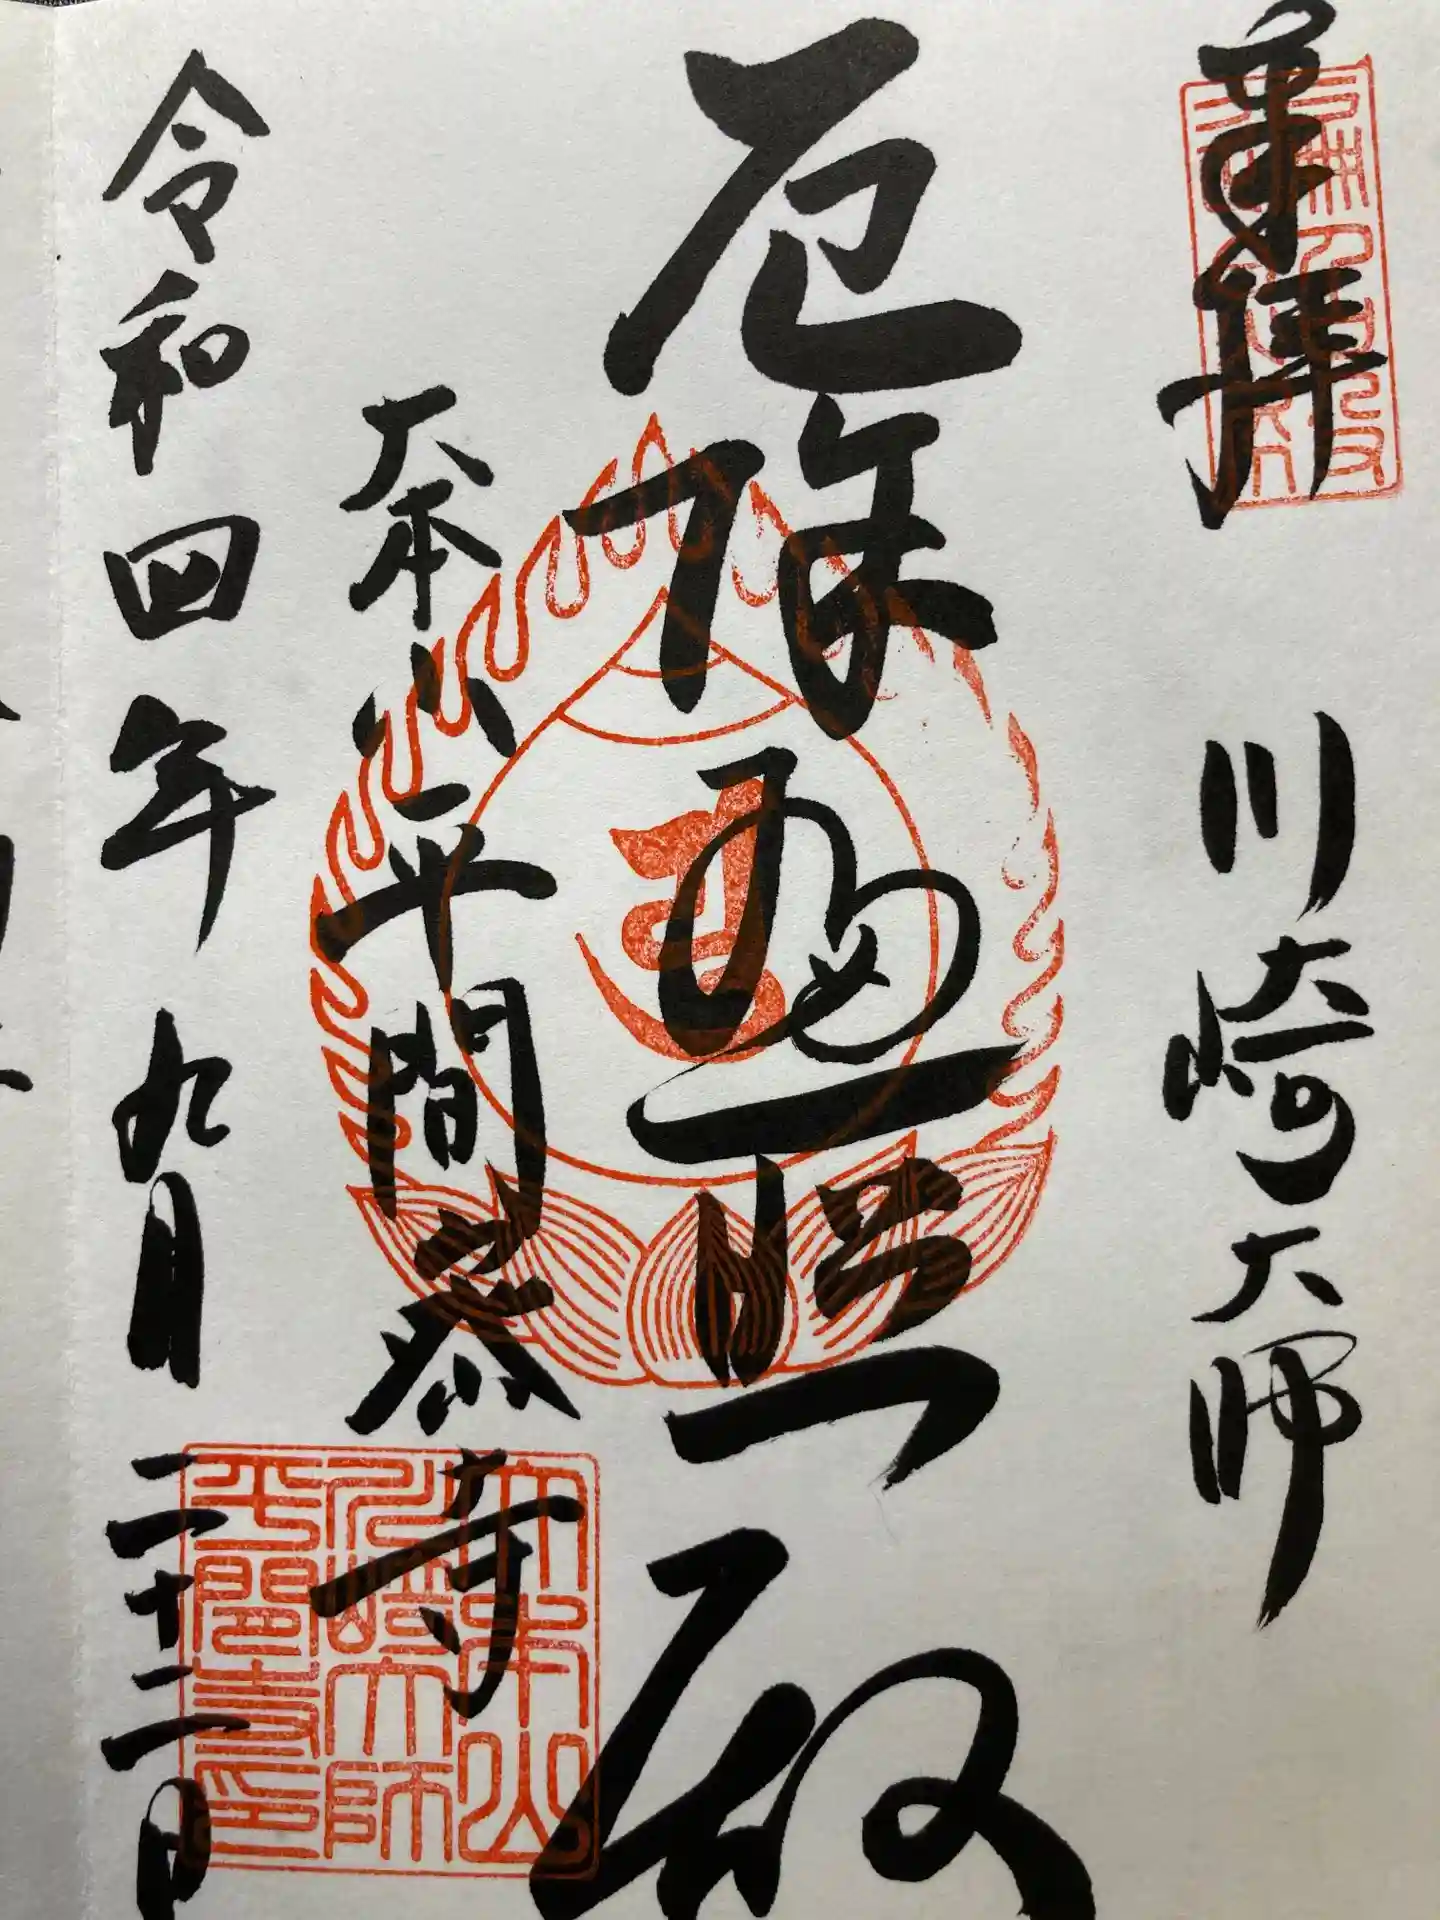 奉拝
川崎大師
厄除遍照殿
大本山平間寺
令和四年九月二十二日
大本山
川崎大師
平間寺印